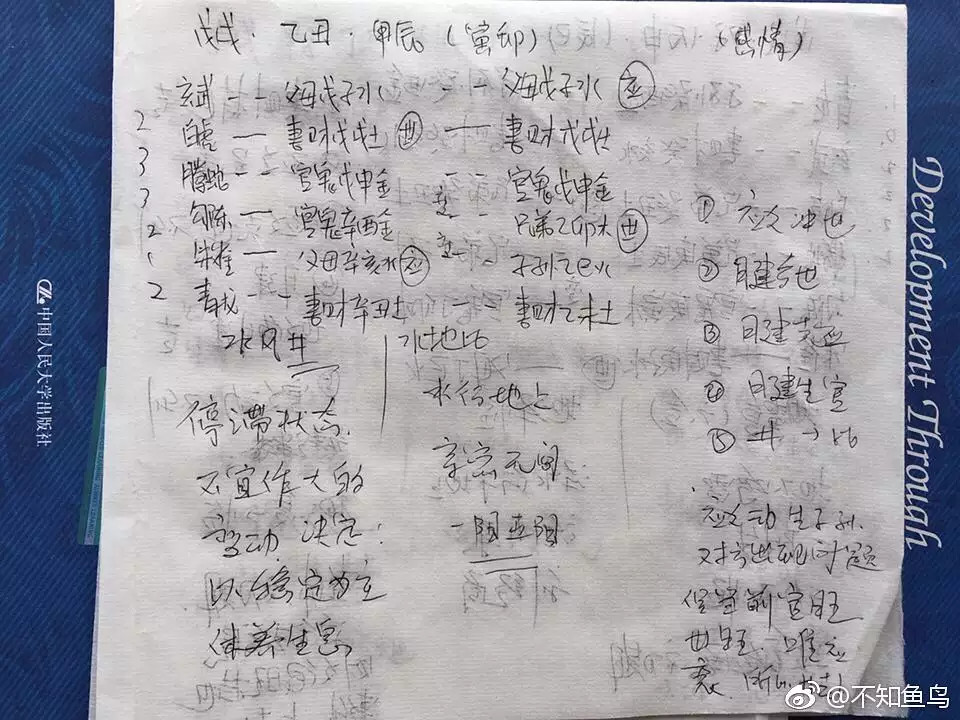 戊戌·乙丑·甲辰(寅卯) (感情)
玄武 -- 父母戊子水 -- 父母戊子水 应
2 白虎 — 妻财戊戌土 世 — 妻财戊戌土
3 腾蛇 -- 官鬼戊申金 -- 官鬼戊申金
3 勾陈 — 官鬼辛酉金 -- 兄弟乙卯木 世
2 朱雀 — 父母辛亥水 应 -- 子孙乙巳火
2 青龙 -- 妻财辛丑土 -- 妻财乙未土
水风井
水地比
停滞状态
不宜作大的
变动 决定:
以稳定为主
休养生息
水行地上
亲密无间
一阳五阴
① 应爻冲世
② 日建合世
③ 日建克应
④ 日建生官
⑤ 井→比
应爻动生子孙
对方出现问题
官旺
世旺 唯应
衰
中国人民大学出版社
Development Through
@不知鱼鸟